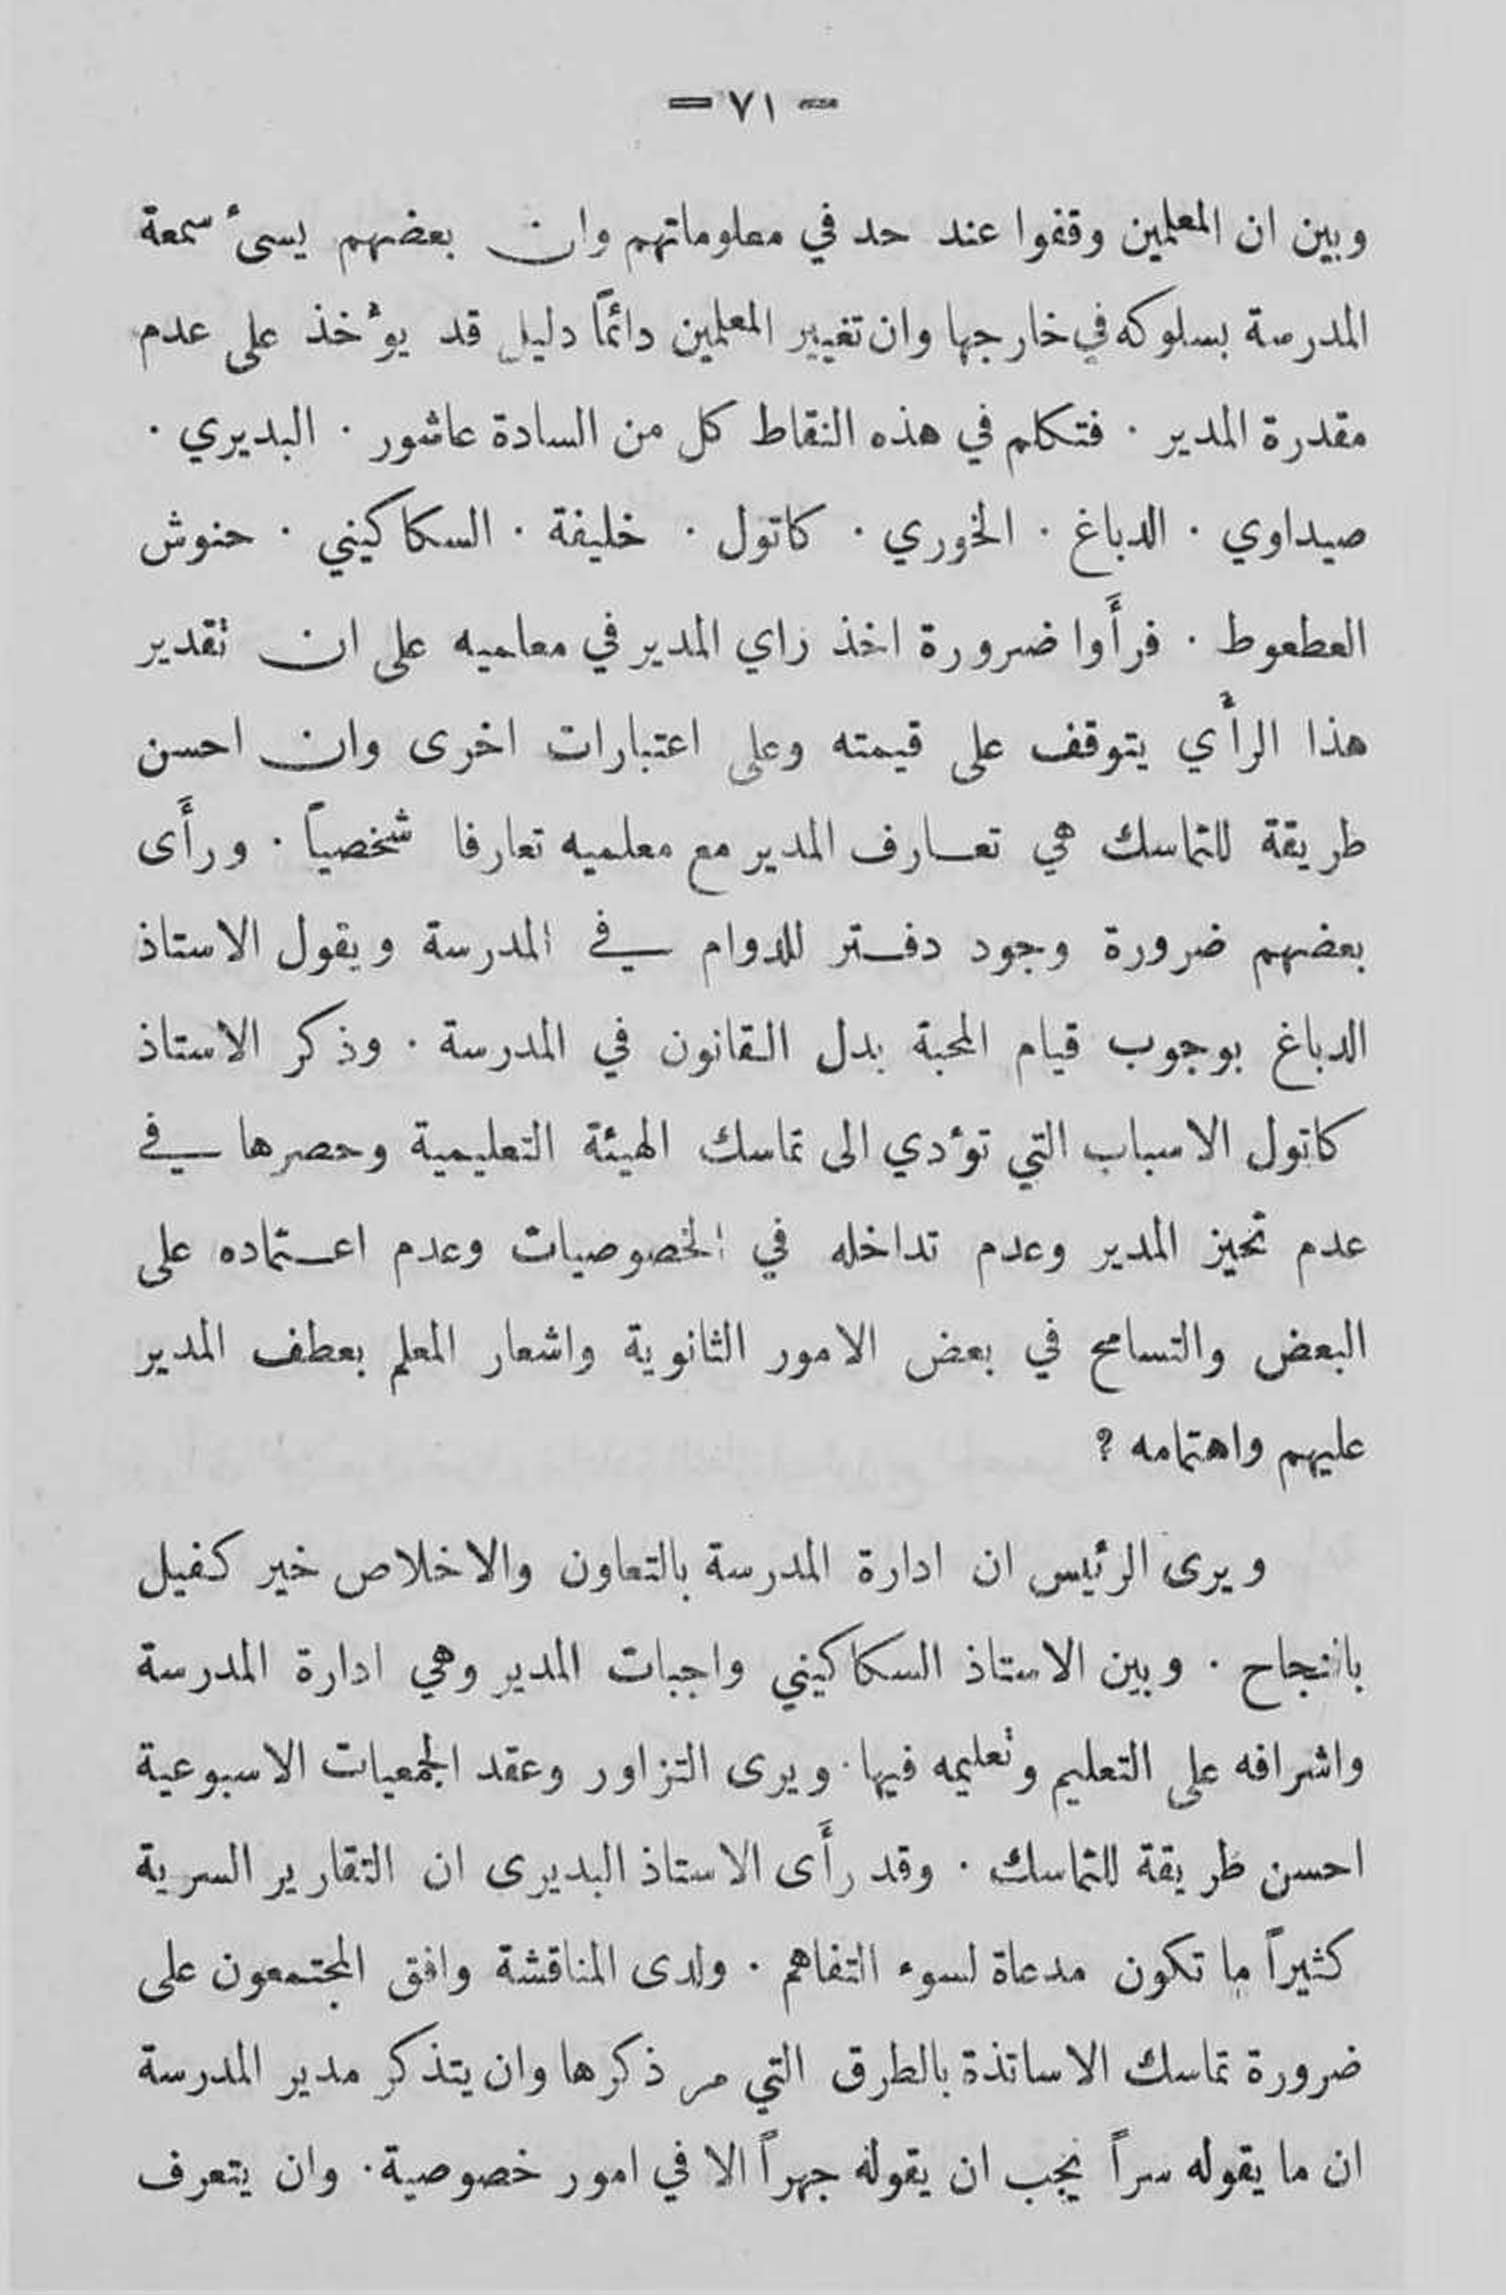 — ٧١ —
وبين ان المعلمين وقفوا عند حد في معلوماتهم وان بعضهم يسيء سمعة
المدرسة بسلوكه في خارجها وان تغيير المعلمين دائماً دليل قد يؤخذ على عدم
مقدرة المدير . فتكلم في هذه النقاط كل من السادة عاشور . البديري .
صيداوي . الدباغ . الخوري . كاتول . خليفة . السكاكيني . حنوش
العطعوط . فرأَوا ضرورة اخذ راي المدير في معلميه على ان تقدير
هذا الرأي يتوقف على قيمته وعلى اعتبارات اخرى وان احسن
طريقة للتماسك هي تعارف المدير مع معلميه تعارفا شخصياً . ورأَى
بعضهم ضرورة وجود دفتر للدوام في المدرسة ويقول الاستاذ
الدباغ بوجوب قيام المحبة بدل القانون في المدرسة . وذكر الاستاذ
كاتول الاسباب التي تؤدي الى تماسك الهيئة التعليمية وحصرها في
عدم تحيز المدير وعدم تداخله في الخصوصيات وعدم اعتماده على
البعض والتسامح في بعض الامور الثانوية واشعار المعلم بعطف المدير
عليهم واهتمامه ؟
ويرى الرئيس ان ادارة المدرسة بالتعاون والاخلاص خير كفيل
بالنجاح . وبين الاستاذ السكاكيني واجبات المدير وهي ادارة المدرسة
واشرافه على التعليم وتعليمه فيها . ويرى التزاور وعقد الجمعيات الاسبوعية
احسن طريقة للتماسك . وقد رأَى الاستاذ البديرى ان التقارير السرية
كثيراً ما تكون مدعاة لسوء التفاهم . ولدى المناقشة وافق المجتمعون على
ضرورة تماسك الاساتذة بالطرق التي مر ذكرها وان يتذكر مدير المدرسة
ان ما يقوله سراً يجب ان يقوله جهراً الا في امور خصوصية . وان يتعرف